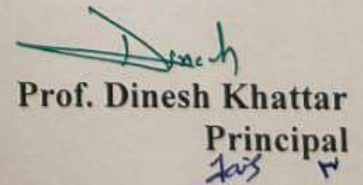 Dinesh
Prof. Dinesh Khattar
Principal